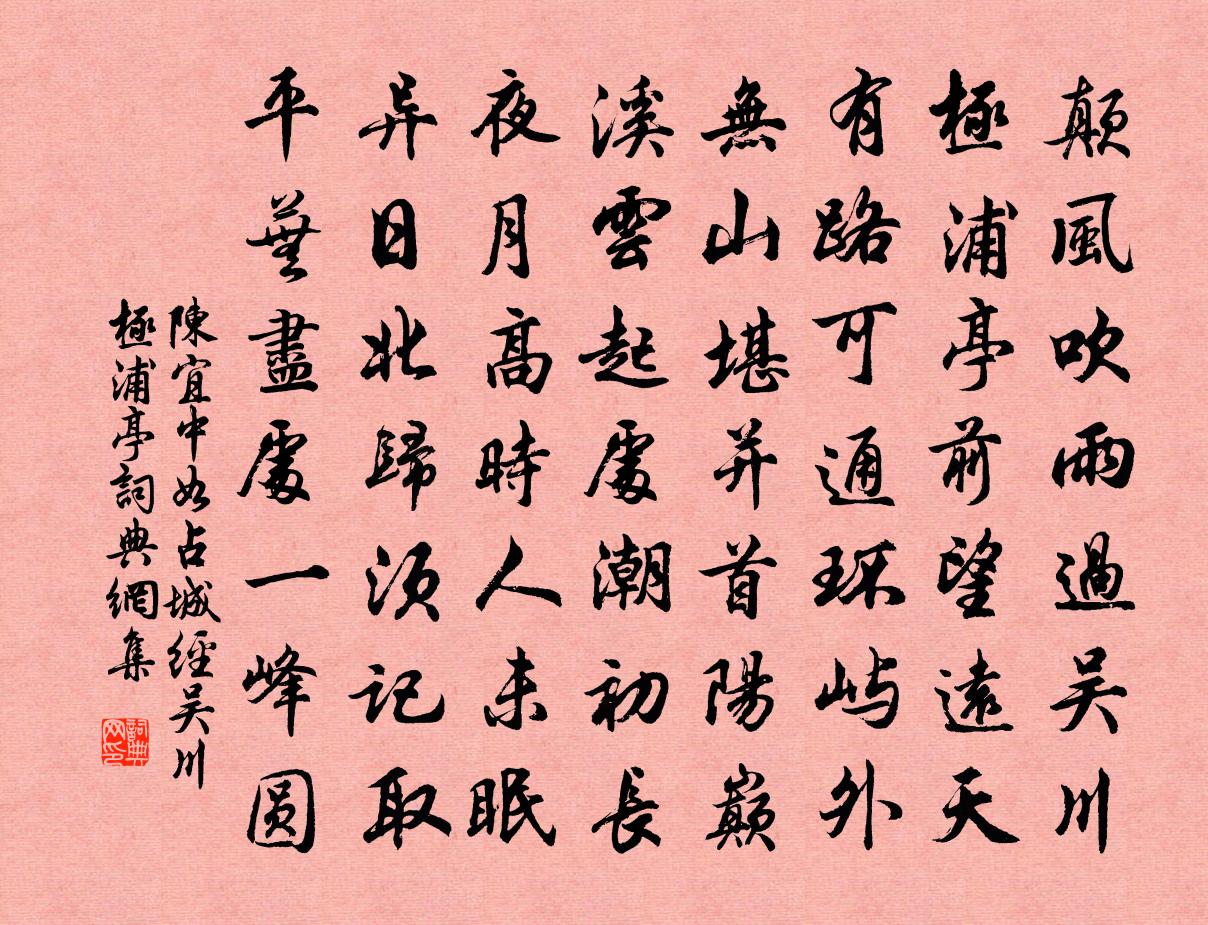 顛風吹雨過吴川
極浦亭前望遠天
有路可通环屿外
無山堪并首陽巅
溪雲起處潮初長
夜月高時人未眠
异日北歸须记取
平蕪盡處一峰圆
陳宜中如占城經吴川
極浦亭詞典網集
詞典網印